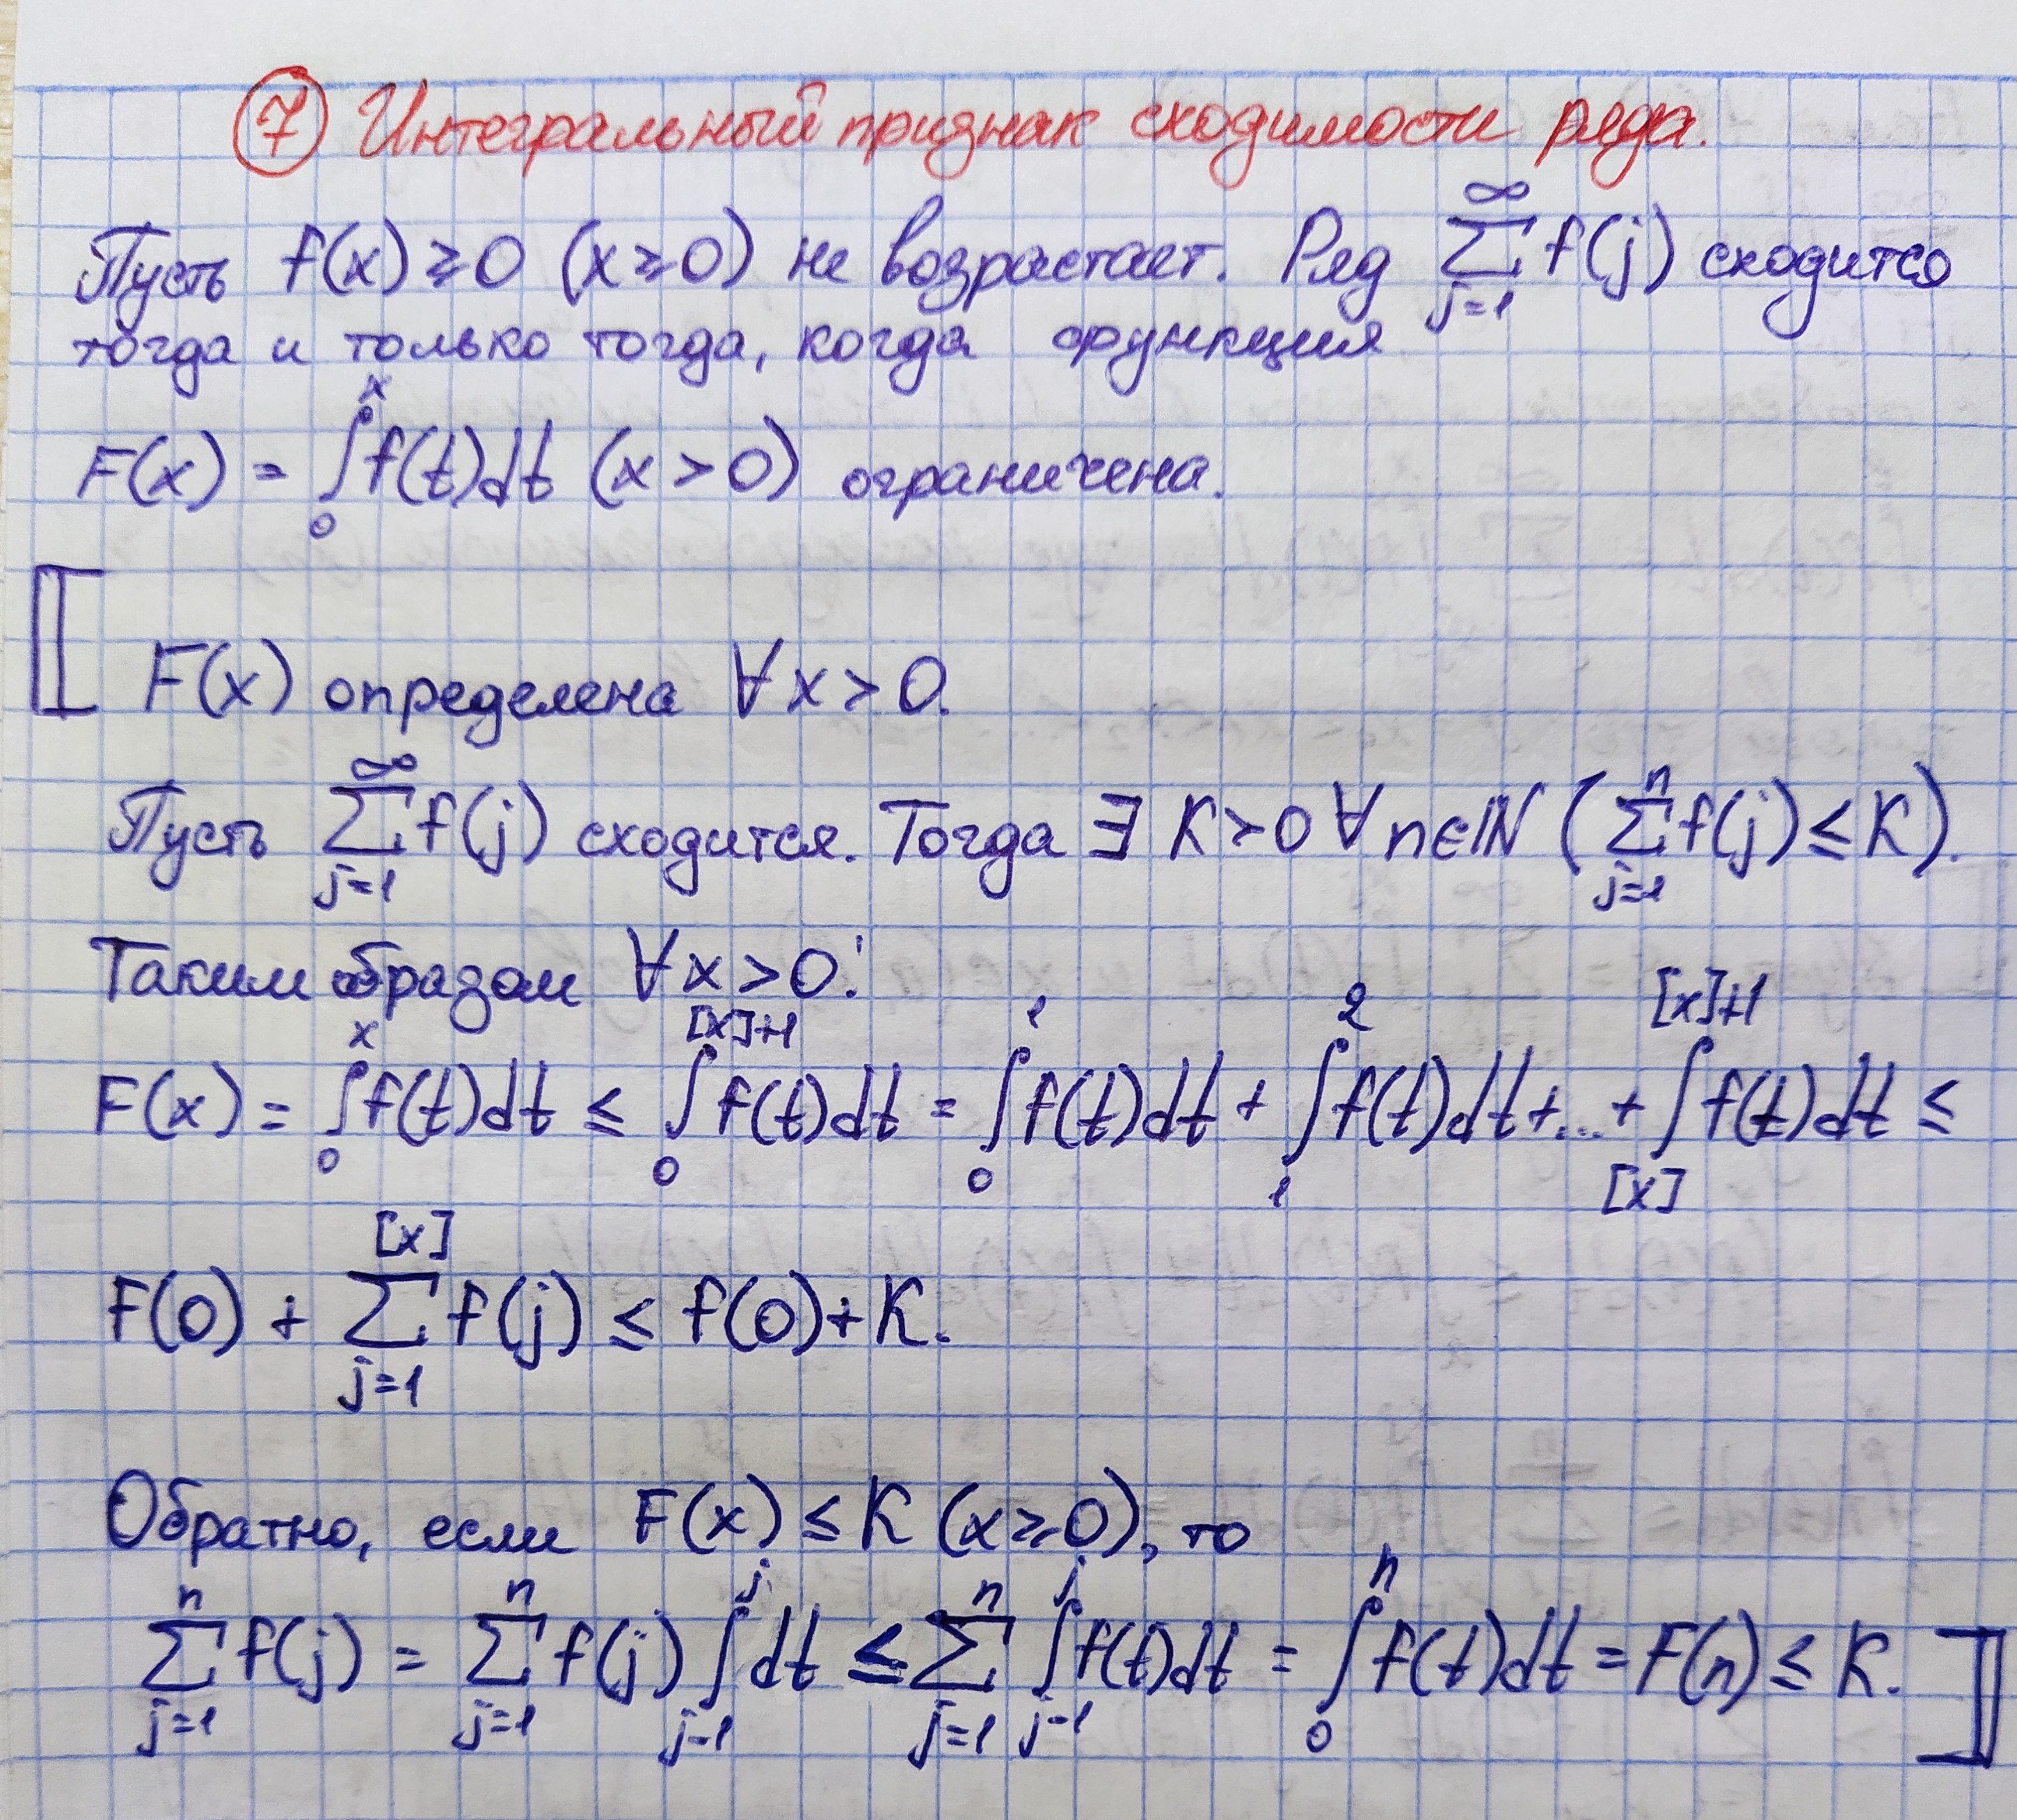 ⑦ Интегральный признак сходимости ряда.
Пусть f(x) ≥ 0 (x ≥ 0) не возрастает. Ряд ∑_{j=1}^{∞} f(j) сходится
тогда и только тогда, когда функция
F(x) = ∫_0^x f(t)dt (x > 0) ограничена.
⟦ F(x) определена ∀x > 0.
Пусть ∑_{j=1}^{∞} f(j) сходится. Тогда ∃ K > 0 ∀n∈ℕ (∑_{j=1}^{n} f(j) ≤ K).
Таким образом ∀x > 0:
F(x) = ∫_0^x f(t)dt ≤ ∫_0^{[x]+1} f(t)dt = ∫_0^1 f(t)dt + ∫_1^2 f(t)dt + ... + ∫_{[x]}^{[x]+1} f(t)dt ≤
F(0) + ∑_{j=1}^{[x]} f(j) ≤ f(0) + K.
Обратно, если F(x) ≤ K (x ≥ 0), то
∑_{j=1}^{n} f(j) = ∑_{j=1}^{n} f(j) ∫_{j-1}^{j} dt ≤ ∑_{j=1}^{n} ∫_{j-1}^{j} f(t)dt = ∫_0^n f(t)dt = F(n) ≤ K. ⟧